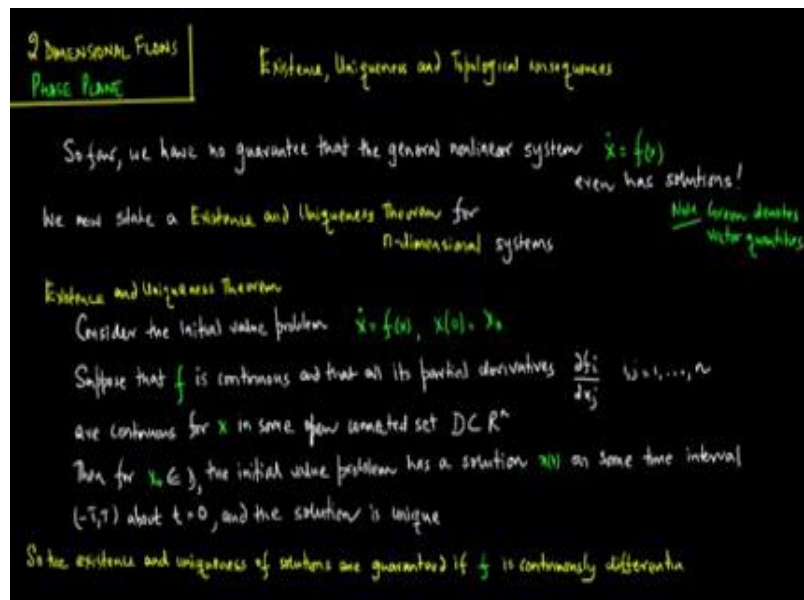 2 DIMENSIONAL FLOWS
PHASE PLANE
Existence, Uniqueness and Topological consequences
So far, we have no guarantee that the general nonlinear system ẋ = f(x)
even has solutions!
We now state a Existence and Uniqueness Theorem for
n-dimensional systems
Note Green denotes
vector quantities
Existence and Uniqueness Theorem
Consider the initial value problem ẋ = f(x), x(0) = x₀
Suppose that f is continuous and that all its partial derivatives ∂fi/∂xj i,j = 1, ..., n
are continuous for x in some open connected set D ⊂ Rⁿ
Then for x₀ ∈ D, the initial value problem has a solution x(t) on some time interval
(-T,T) about t = 0, and the solution is unique
So the existence and uniqueness of solutions are guaranteed if f is continuously differentia